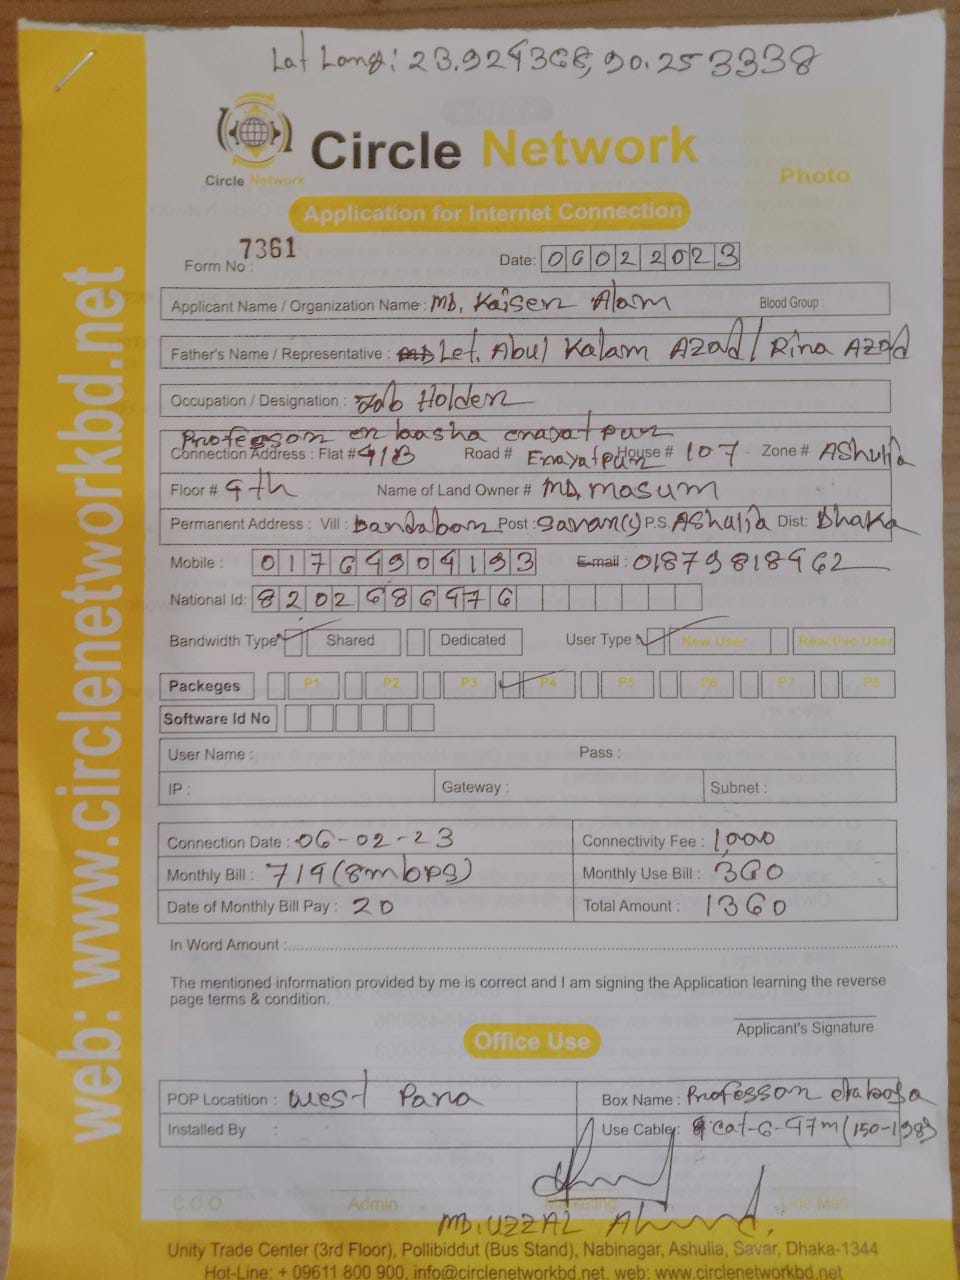 Lat Long: 23.924368, 90.253338
Circle Network
Circle Network
Photo
Application for Internet Connection
Form No : 7361
Date: 06022023
Applicant Name / Organization Name : MD. Kaiser Alam Blood Group :
Father's Name / Representative : Let. Abul Kalam Azad / Rina Azad
Occupation / Designation : Job Holder
Professor er baasha enayatpur
Connection Address : Flat # 4/B Road # Enayatpur House # 107 Zone # Ashulia
Floor # 4th Name of Land Owner # MD. Masum
Permanent Address : Vill : Post : Savar P.S. Ashulia Dist: Dhaka
Mobile : 01764904193 E-mail : 01879818462
National Id: 8202686476
Bandwidth Type Shared Dedicated User Type New User Reactive User
Packeges P1 P2 P3 P4 P5 P6 P7 P8
Software Id No
User Name : Pass :
IP : Gateway : Subnet :
Connection Date : 06-02-23 Connectivity Fee : 1,000
Monthly Bill : 714 (8mbps) Monthly Use Bill : 360
Date of Monthly Bill Pay : 20 Total Amount : 1360
In Word Amount :
The mentioned information provided by me is correct and I am signing the Application learning the reverse
page terms & condition.
Applicant's Signature
Office Use
POP Locatition : West Para Box Name : Professor
Installed By : Use Cable: Cat-6-47m (150-198)
C.O.O Admin Marketing Line Man
MD. UZZAL Ahmed.
Unity Trade Center (3rd Floor), Pollibiddut (Bus Stand), Nabinagar, Ashulia, Savar, Dhaka-1344
Hot-Line: + 09611 800 900, info@circlenetworkbd.net, web: www.circlenetworkbd.net
web: www.circlenetworkbd.net